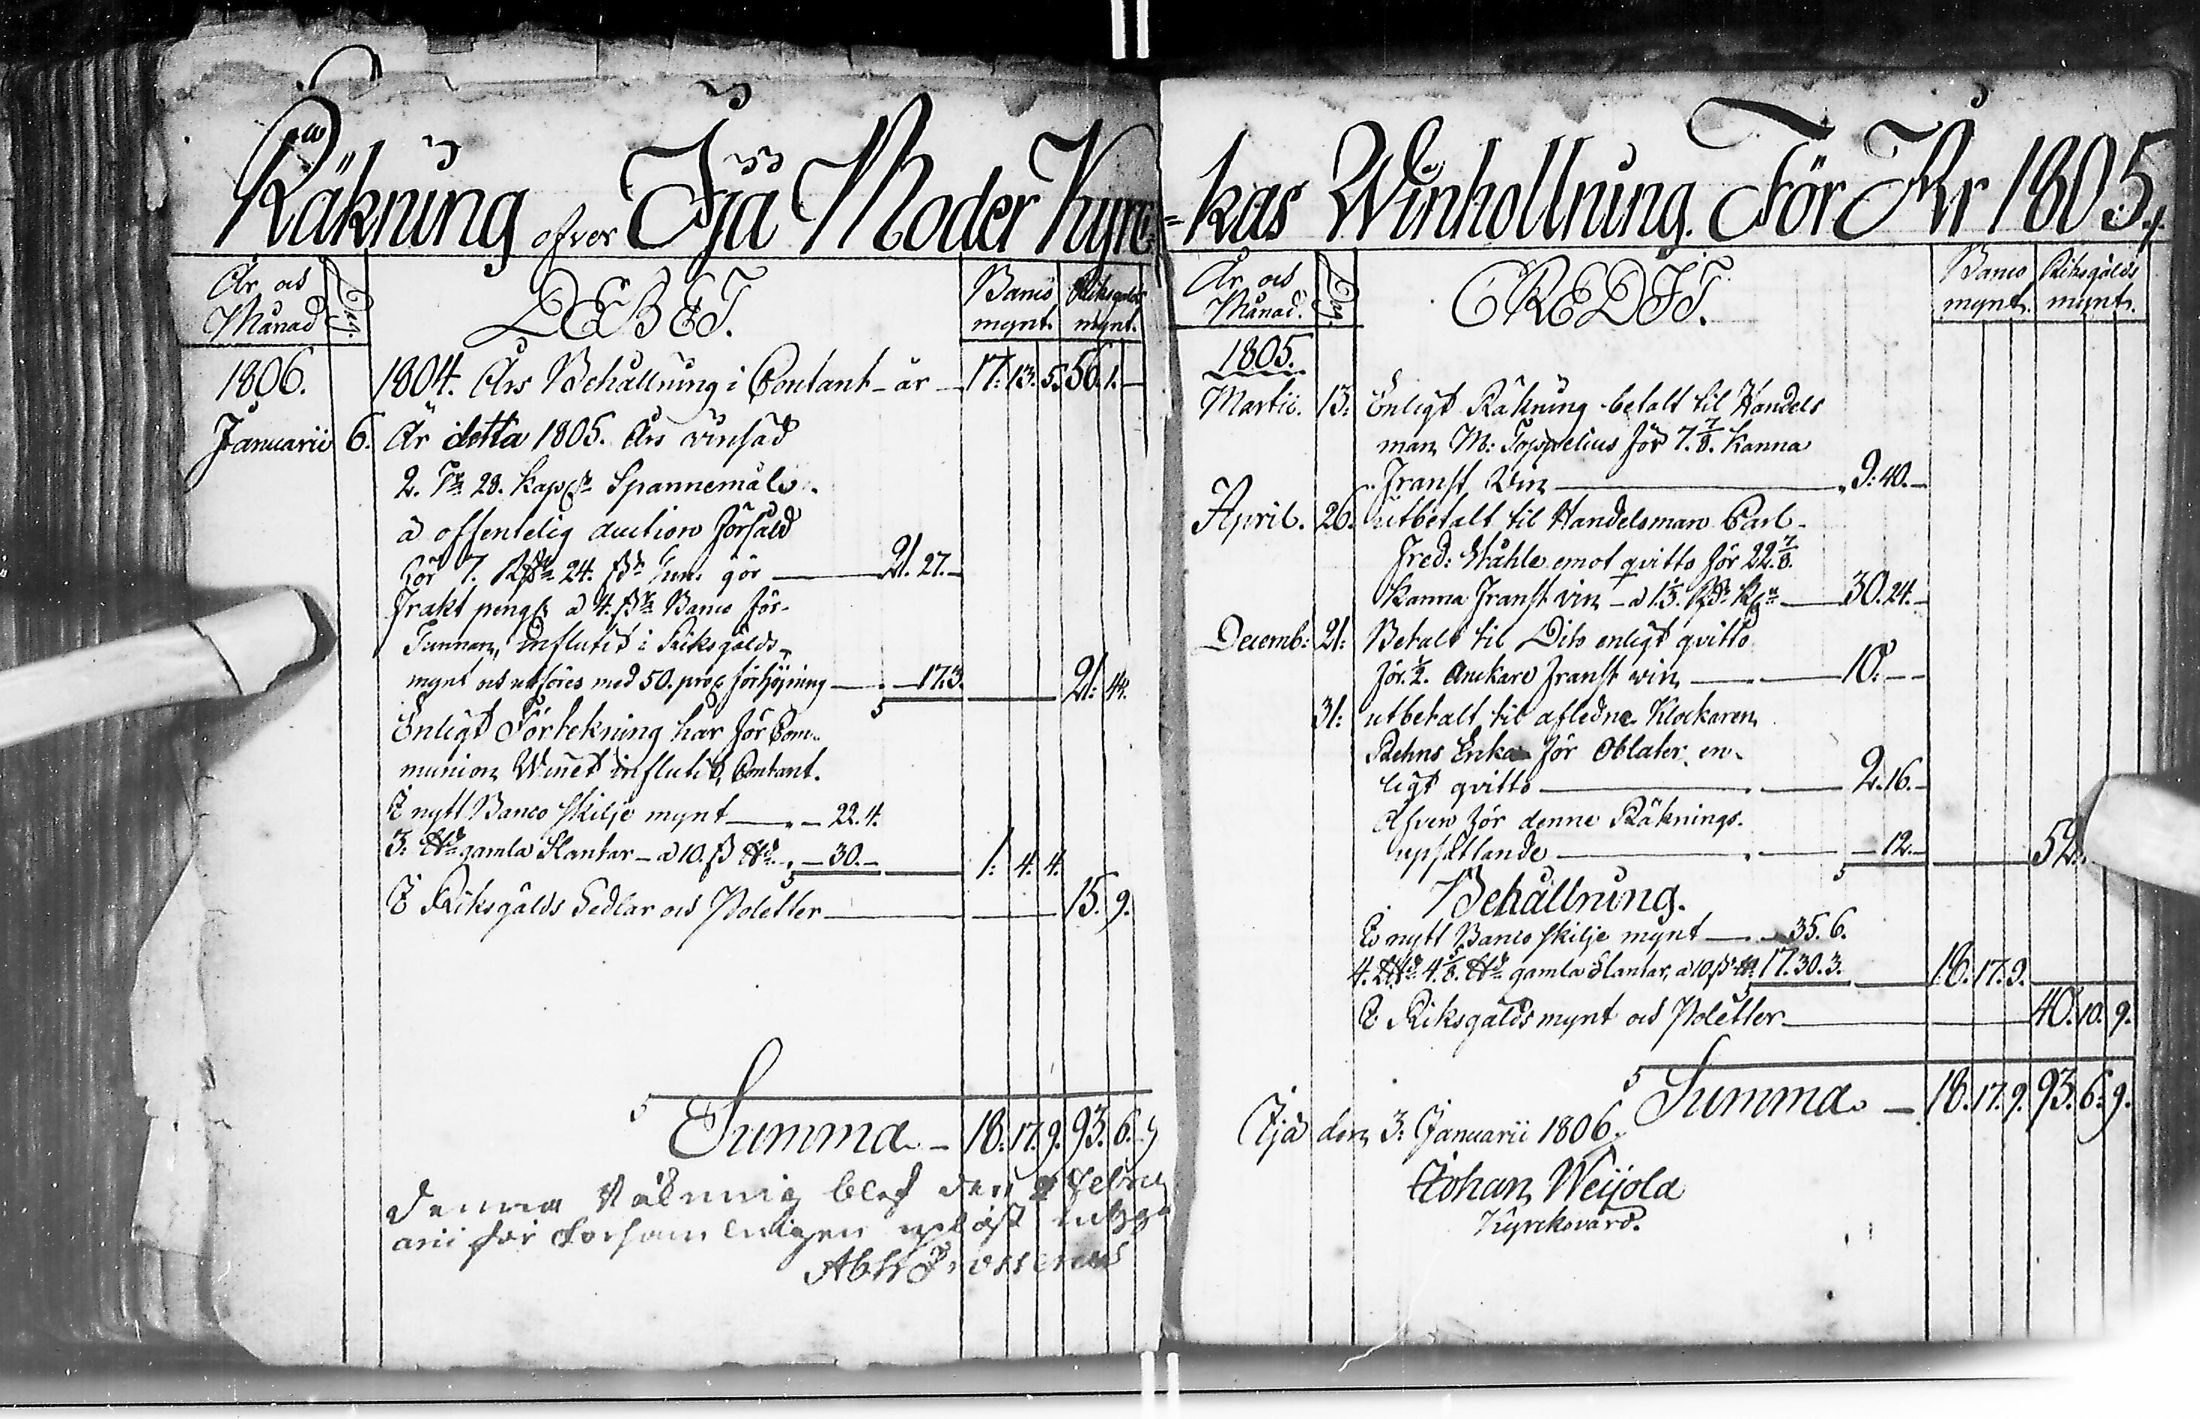 Räkning öfver Ijå Moder Kyrc-
År och Månad
Dag.
DEBET.
Banco mynt.
Riksgälds mynt.
1806. 1804. Års Behållning i Contant är — 17. 13. 5. 56. 1. —
Januarii 6. Är detta 1805. Års vinsäd
2. Tr 28. kappr Spannemåls
å offentelig auction försåld
för 7. Rdr 24. sk Tun. gör — 21. 27. —
Frakt peng. a 4. sk Banco för
Tunnan, influtit i Riksgälds
mynt och utföres med 50. proC. förhöjning — 17.3. 21. 44.
Enligt Förtekning har för Com-
munion Winet influtit, Contant.
I nytt Banco skilje mynt — 22. 4.
3. gamla Slantar – a 10. sk — 30. — 1. 4. 4.
I Riksgälds Sedlar och Poletter — 15. 9.
Summa — 18. 17. 9. 93. 6. 9
Denna Räkning blef den Febru
arii för Församlingen upläst
Abr
-kas Winhollning För År 1805.
År och Månad.
Dag.
CREDIT.
Banco mynt.
Riksgälds mynt.
1805.
Martii. 13. Enligt Räkning betalt til Handels
man M: Toppelius för 7. 7/8. Kanna
Franst Vin — 9. 40. —
April. 26. utbetalt til Handelsman Carl
Fred: Ståhle emot qvitto för 22 7/8.
Kanna Franst vin – a 1 1/3. Rdr — 30. 24. —
Decemb: 21: Betalt til Dito enligt qvitto
för 1/2. Anckare Franst vin — 10. — —
31: utbetalt til afledne Klockaren
Rehns Enka för Oblater, en-
ligt qvitto — 2. 16. —
Äfven för denne Räknings
upsättande — 12. — 52.
Behållning.
I nytt Banco skilje mynt — 35. 6.
4. 4 5/8. gamla Slantar, a 10 sk 17. 30. 3. 18. 17. 9.
I Riksgälds mynt och Poletter — 40. 10. 9.
Summa — 18. 17. 9. 93. 6. 9.
Ijå den 3. Januarii 1806.
Johan Weijola
Kyrckovärd.